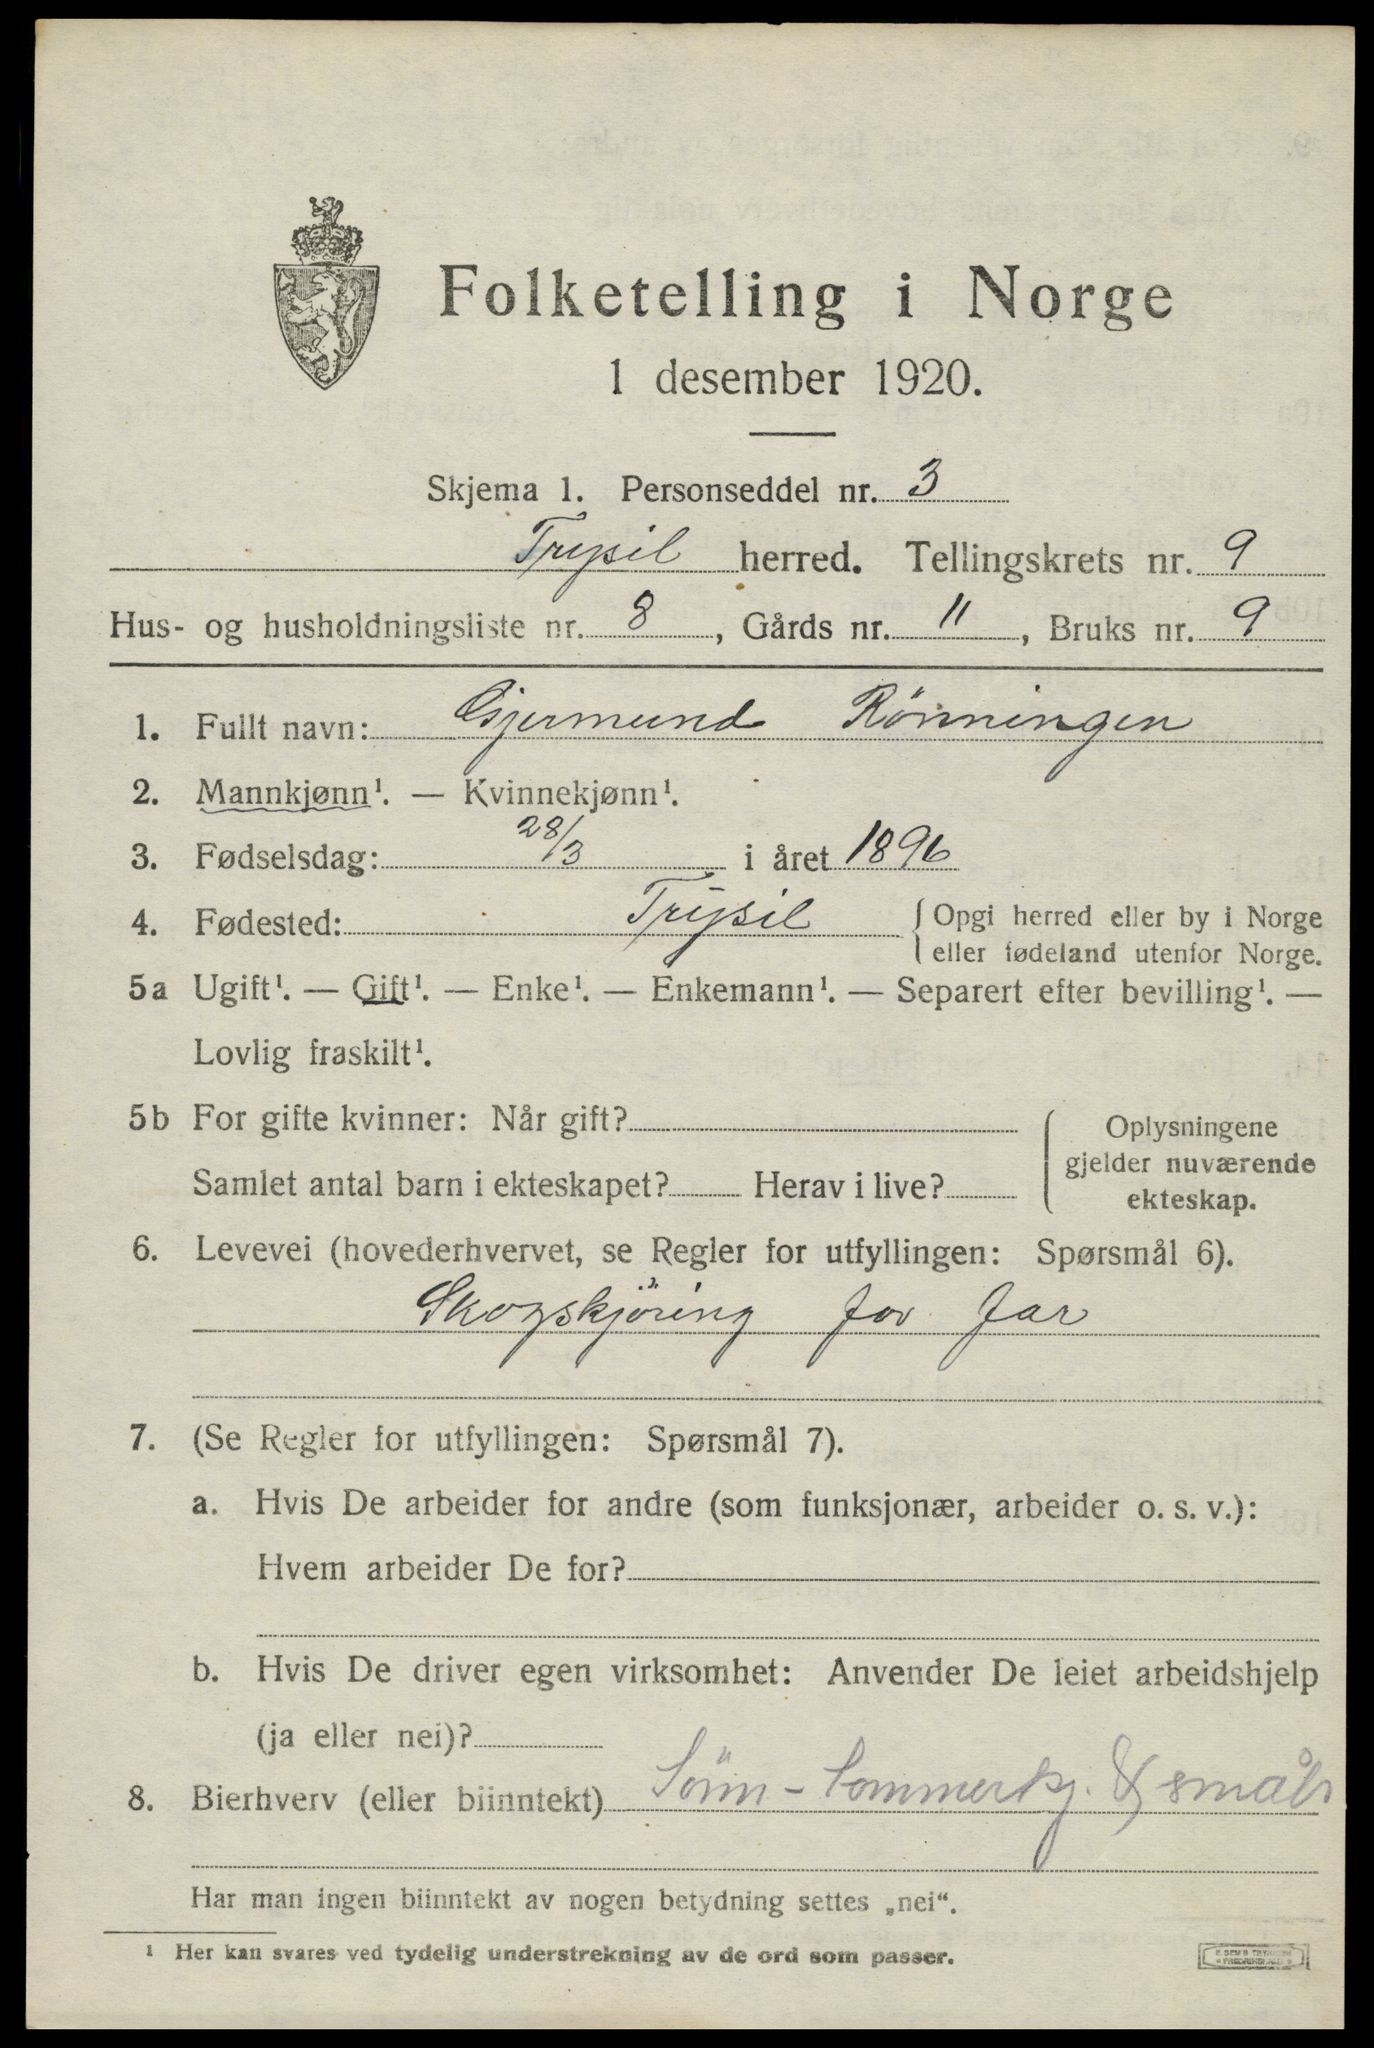 Folketelling i Norge
1 desember 1920.
Skjema 1. Personseddel nr. 3
Trysil herred. Tellingskrets nr. 9
Hus- og husholdningsliste nr. 8, Gårds nr. 11, Bruks nr. 9
1. Fullt navn: Gjermund Rönningen
2. Mannkjønn¹. — Kvinnekjønn¹.
3. Fødselsdag: 28/3 i året 1896
4. Fødested: Trysil { Opgi herred eller by i Norge
eller fødeland utenfor Norge.
5a Ugift¹. — Gift¹. — Enke¹. — Enkemann¹. — Separert efter bevilling¹. —
Lovlig fraskilt¹.
5b For gifte kvinner: Når gift?
Samlet antal barn i ekteskapet? Herav i live?
Oplysningene
gjelder nuværende
ekteskap.
6. Levevei (hovederhvervet, se Regler for utfyllingen: Spørsmål 6).
Skogskjöring for far
7. (Se Regler for utfyllingen: Spørsmål 7).
a. Hvis De arbeider for andre (som funksjonær, arbeider o. s. v.):
Hvem arbeider De for?
b. Hvis De driver egen virksomhet: Anvender De leiet arbeidshjelp
(ja eller nei)?
8. Bierhverv (eller biinntekt)
Har man ingen biinntekt av nogen betydning settes „nei“.
¹ Her kan svares ved tydelig understrekning av de ord som passer.